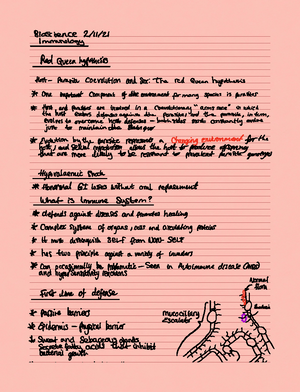 Bioscience 2/11/21
Immunology
Red Queen hypothesis
Host - Parasite Coevolution and Sex: The red Queen hypothesis
* One important Component of the environment for many species is parasites
* Host and Parasites are involved in a Coevolutionary "arms race" in which
the host evolves defenses against the parasites, and the parasite, in turn,
evolves to overcome host defenses - both sides must constantly evolve
just to maintain the
* Evolution by the parasite represents a Changing environment for the
host, and sexual reproduction allows the host to produce offspring
that are more likely to be resistant to prevalent parasite genotypes
Hypovolaemic Shock
* Abnormal GI losses without oral replacement
What is Immune System?
* defends against diseases and promotes healing
* Complex system of organs, cells and circulating proteins
* It must distinguish SELF from NON-SELF
* has two principle against a variety of invaders
* Can occasionally be problematic - Seen in Autoimmune disease
and hypersensitivity responses
First line of defense
* Passive barriers
* Epidermis - Physical barrier
* Sweat and Sebaceous glands
Secrete fatty acids that inhibit
bacterial growth
mucociliary
escalator
Normal
flora